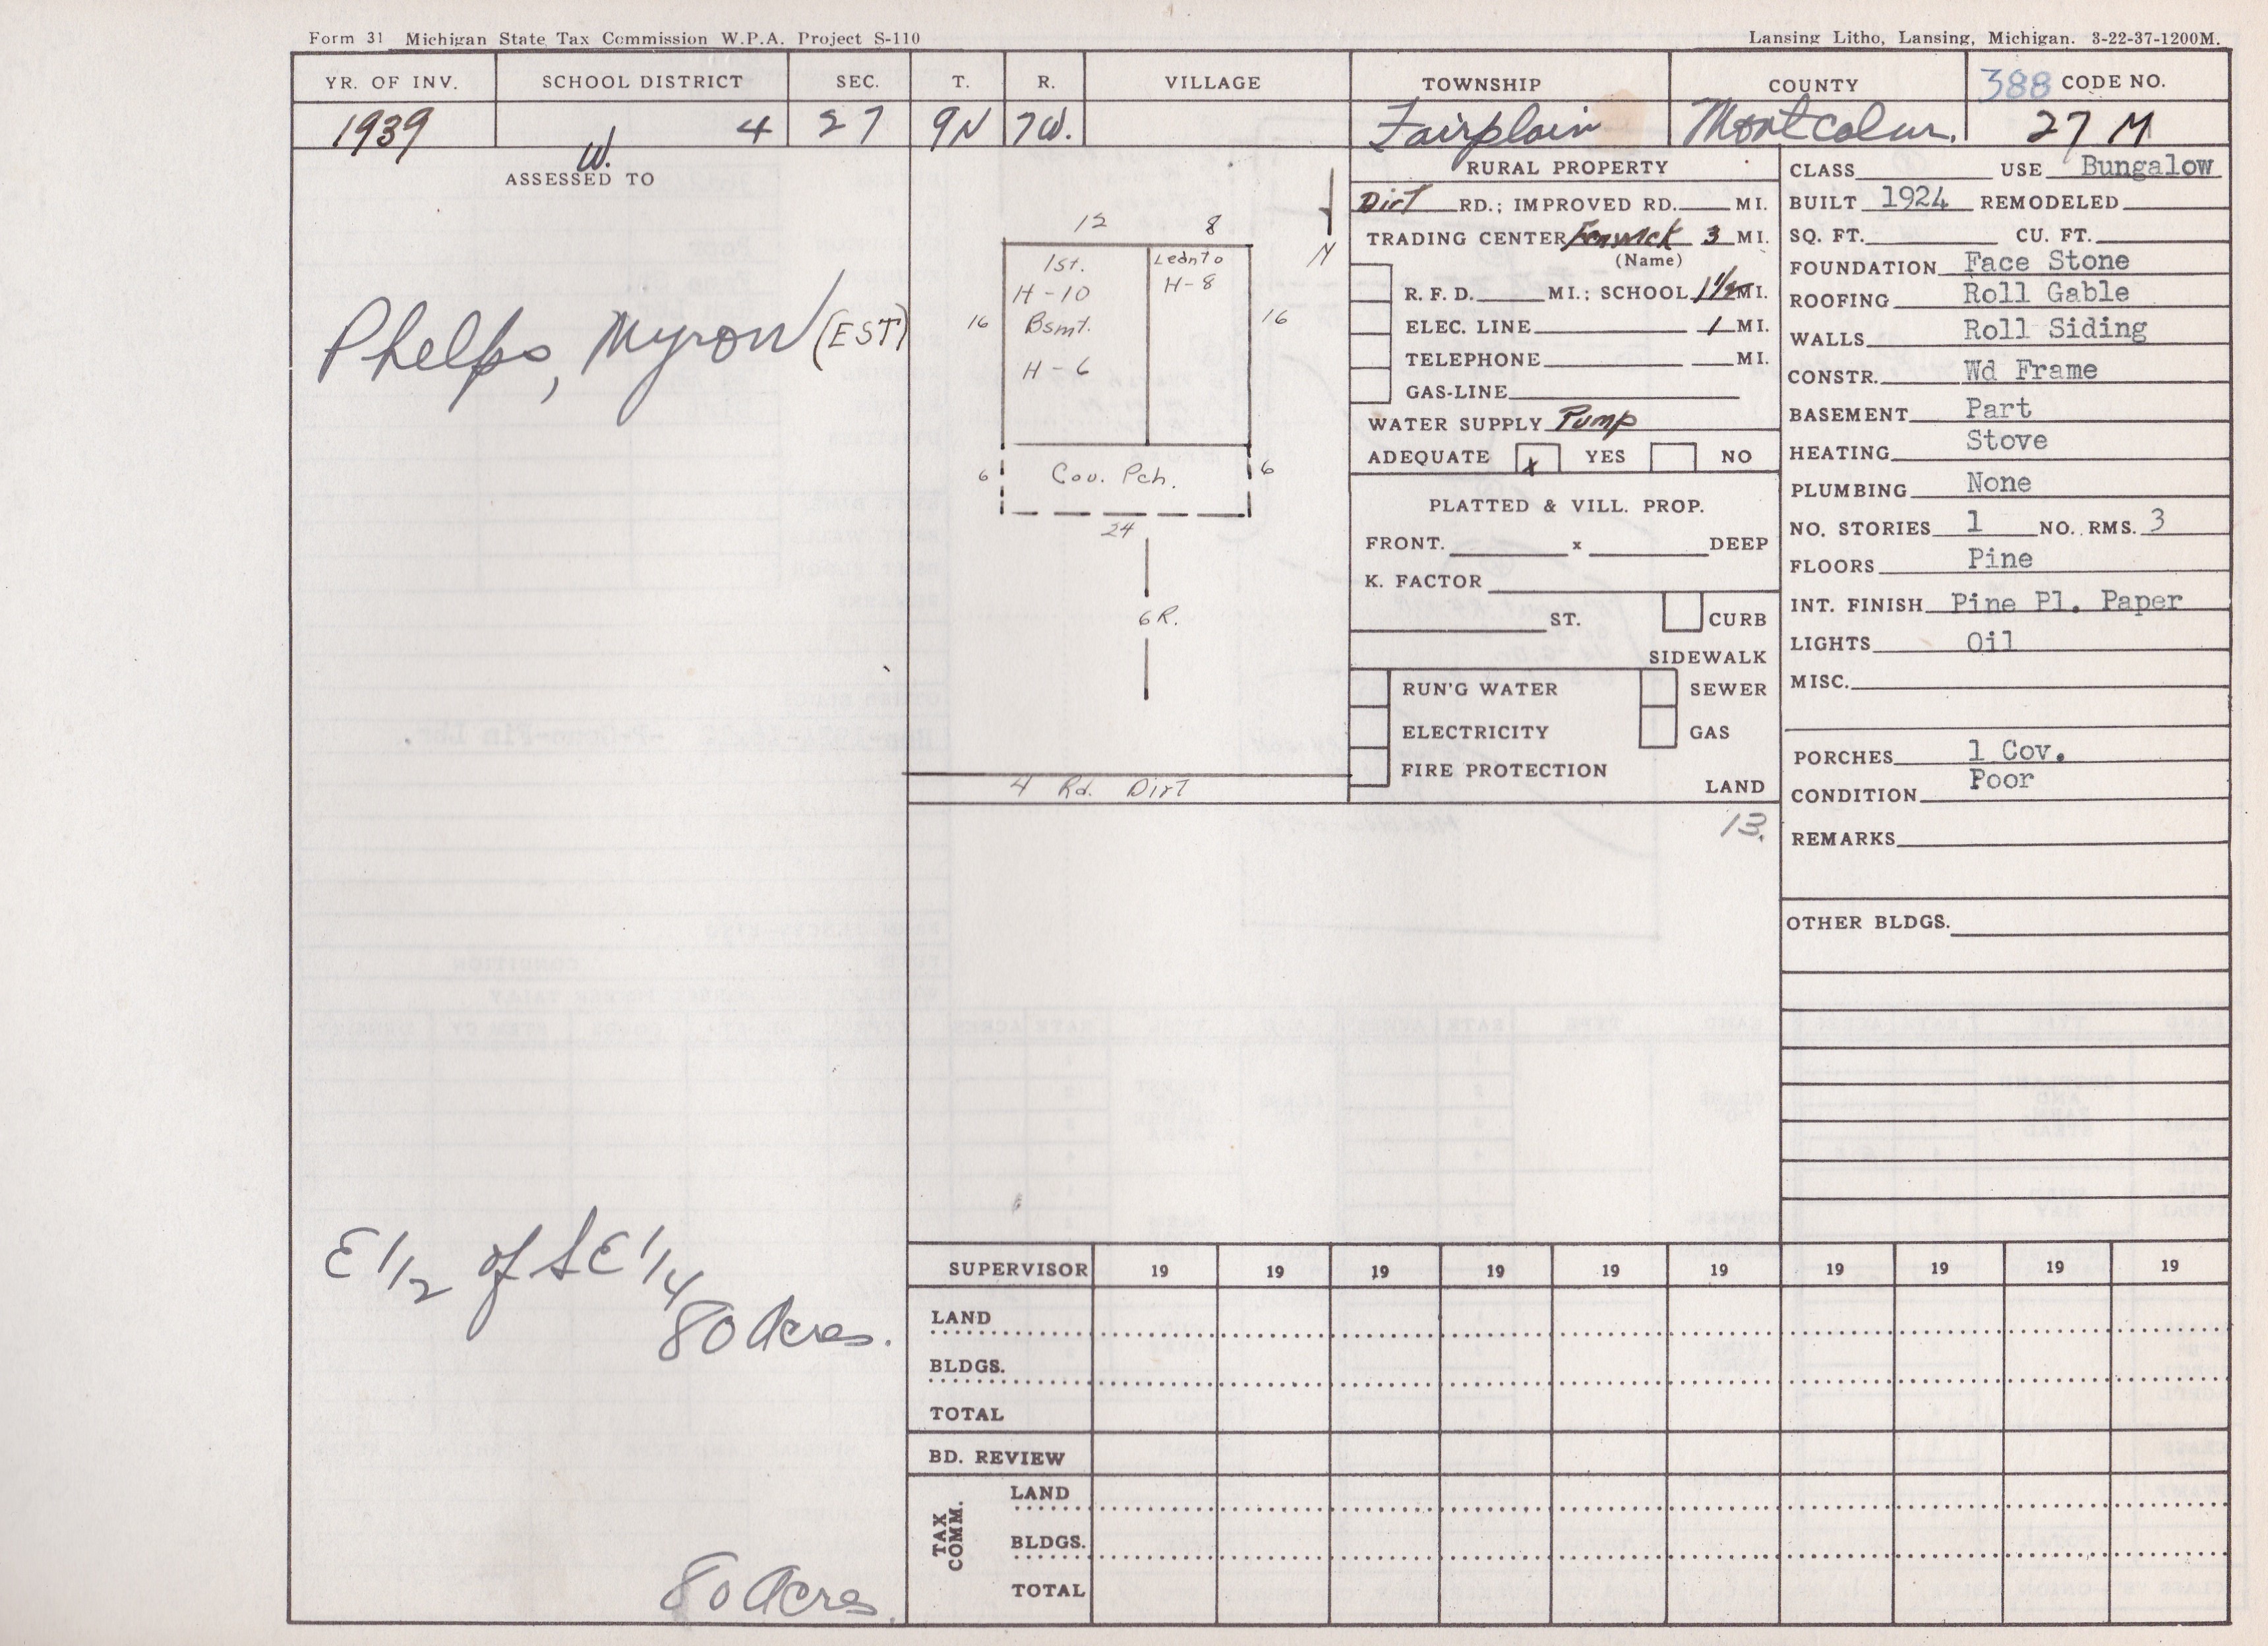 Form 31 Michigan State Tax Commission W.P.A. Project S-110
Lansing Litho, Lansing, Michigan. 3-22-37-1200M.
YR. OF INV. SCHOOL DISTRICT SEC. T. R. VILLAGE TOWNSHIP COUNTY 388 CODE NO.
1939 W. 4 27 9N 7W. Fairplain Montcalm. 27 M
ASSESSED TO
Phelps, Myron (EST)
E 1/2 of SE 1/4
80 Acres.
80 Acres.
12 8
N
1st. Leanto
H-10 H-8
16 Bsmt. 16
H-6
6 Cov. Pch. 6
24
6 R.
4 Rd. Dirt
RURAL PROPERTY
Dirt RD.; IMPROVED RD. MI.
TRADING CENTER Fenwick 3 MI.
(Name)
R. F. D. MI.; SCHOOL 1 1/2 MI.
ELEC. LINE 1 MI.
TELEPHONE MI.
GAS-LINE
WATER SUPPLY Pump
ADEQUATE x YES NO
PLATTED & VILL. PROP.
FRONT. x DEEP
K. FACTOR
ST. CURB
SIDEWALK
RUN'G WATER SEWER
ELECTRICITY GAS
FIRE PROTECTION
LAND
13.
CLASS USE Bungalow
BUILT 1924 REMODELED
SQ. FT. CU. FT.
FOUNDATION Face Stone
ROOFING Roll Gable
WALLS Roll Siding
CONSTR. Wd Frame
BASEMENT Part
HEATING Stove
PLUMBING None
NO. STORIES 1 NO. RMS. 3
FLOORS Pine
INT. FINISH Pine Pl. Paper
LIGHTS Oil
MISC.
PORCHES 1 Cov.
CONDITION Poor
REMARKS
OTHER BLDGS.
SUPERVISOR 19 19 19 19 19 19 19 19 19 19
LAND
BLDGS.
TOTAL
BD. REVIEW
TAX COMM.
LAND
BLDGS.
TOTAL